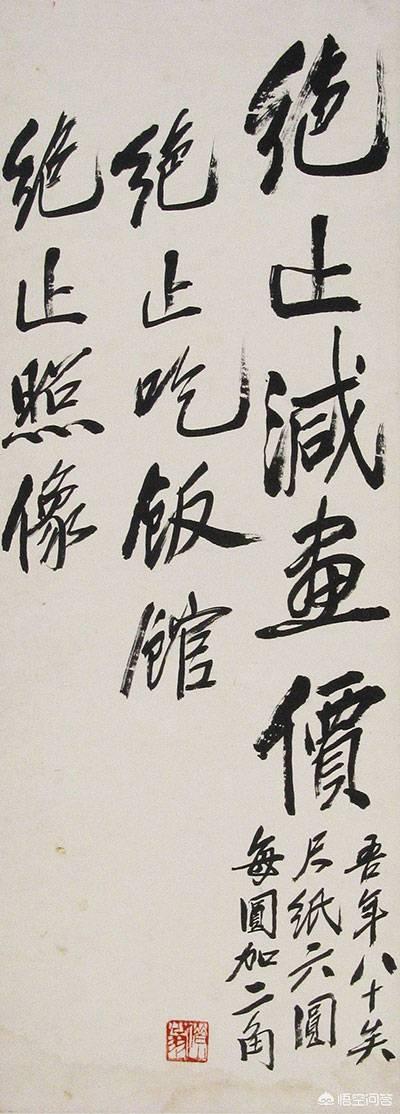 絶止減畫價
吾年八十矣
尺紙六圓
每圓加二角
絶止吃飯館
絶止照像
悟空问答